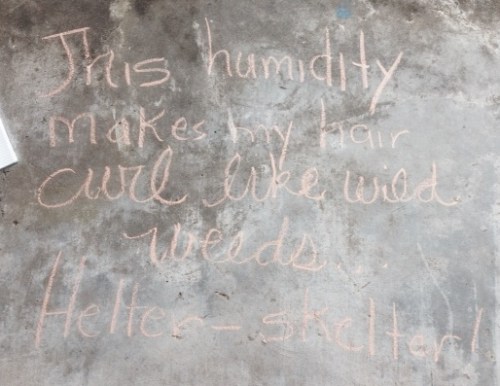 This humidity
makes my hair
curl like wild
weeds...
Helter-skelter!